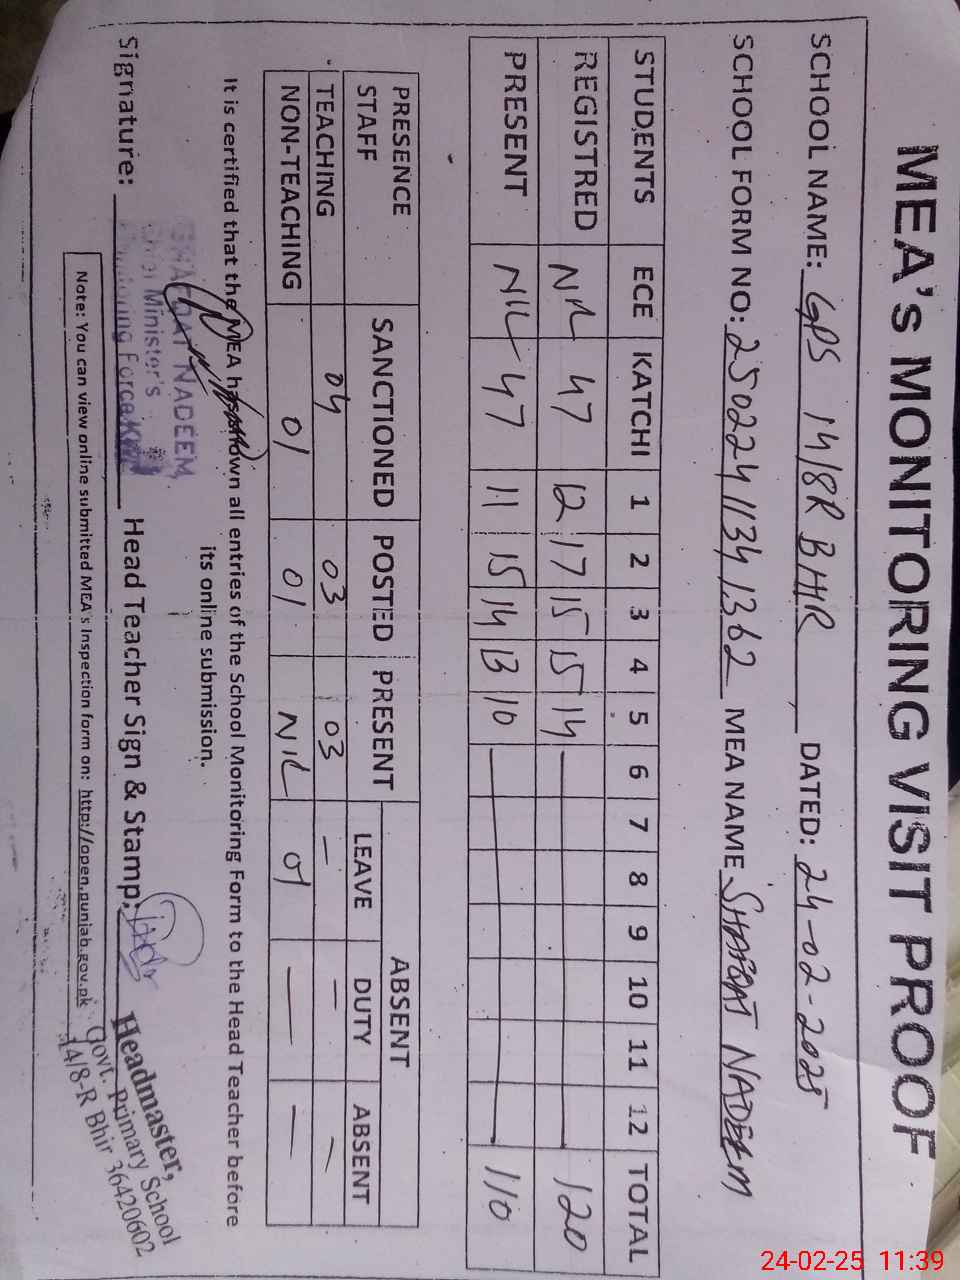 MEA's MONITORING VISIT PROOF
SCHOOL NAME: GPS 14/8R BHR DATED: 24-02-2025
SCHOOL FORM NO: 25022411341362 MEA NAME SHAFQAT NADEEM
STUDENTS ECE KATCHI 1 2 3 4 5 6 7 8 9 10 11 12 TOTAL
REGISTRED NIL 47 12 17 15 15 14 120
PRESENT NIL 47 11 15 14 13 10 110
PRESENCE STAFF SANCTIONED POSTED PRESENT ABSENT
LEAVE DUTY ABSENT
TEACHING 04 03 03 — — —
NON-TEACHING 01 01 NIL 01 — —
It is certified that the MEA has shown all entries of the School Monitoring Form to the Head Teacher before
its online submission.
NADEEM
Minister's
Force
Signature: Head Teacher Sign & Stamp:
Headmaster,
Govt. Primary School
14/8-R Bhir 36420602
Note: You can view online submitted MEA's Inspection form on: http://open.punjab.gov.pk
24-02-25 11:39